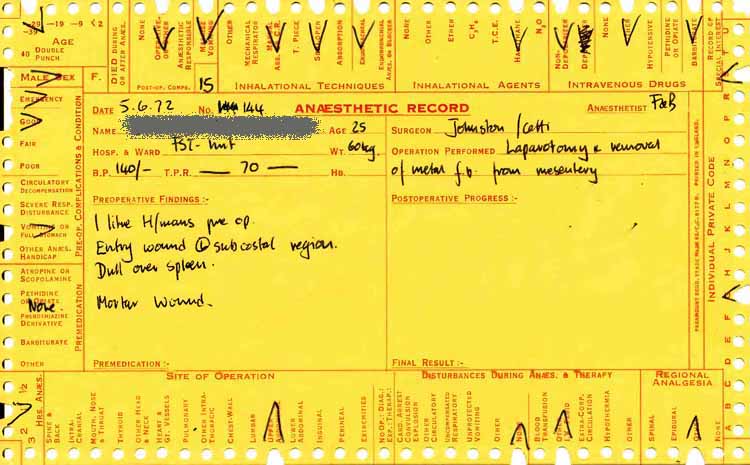 -29 -19 -9 <2
-39
AGE
40 DOUBLE PUNCH
DIED DURING OR AFTER ANÆS.
NONE
ANÆSTHETIC RESPONSIBLE
POST-OP. COMPS.
15
OTHER
MECHANICAL RESPIRATOR
T. PIECE
ABSORPTION
INHALATIONAL TECHNIQUES
NONE
OTHER
ETHER
C₂H₄
T.C.E.
N₂O
INHALATIONAL AGENTS
NON-
HYPOTENSIVE
PETHIDINE OR OPIATE
INTRAVENOUS DRUGS
RECORD OF SPECIAL INTEREST
MALE SEX F.
EMERGENCY
GOOD
FAIR
POOR
CIRCULATORY DECOMPENSATION
SEVERE RESP. DISTURBANCE
VOMITING OR FULL STOMACH
OTHER ANÆS. HANDICAP
PRE-OP. COMPLICATIONS & CONDITION
ATROPINE OR SCOPOLAMINE
PETHIDINE OR OPIATE
None
PHENOTHIAZINE DERIVATIVE
BARBITURATE
OTHER
PREMEDICATION
DATE 5.6.72 NO. 144 ANÆSTHETIC RECORD ANÆSTHETIST
NAME AGE 25 SURGEON Johnston /
HOSP. & WARD WT. 60kg OPERATION PERFORMED Laparotomy & removal
B.P. 140/- T.P.R. — 70 — HB. of metal f.b. from mesentery
PREOPERATIVE FINDINGS:- POSTOPERATIVE PROGRESS:-
1 litre H/mans pre op.
Entry wound (L) subcostal region.
Dull over spleen.
Mortar wound.
PREMEDICATION:- FINAL RESULT:-
INDIVIDUAL PRIVATE CODE
PRINTED IN ENGLAND.
K
A B C D E F G H J K L M N O P
HRS. ANÆS.
3 2 1 ½
SITE OF OPERATION
SPINE & BACK
INTRA-CRANIAL
MOUTH, NOSE & THROAT
THYROID
OTHER HEAD & NECK
HEART & GT. VESSELS
PULMONARY
OTHER INTRA-THORACIC
CHEST-WALL
LUMBAR
LOWER ABDOMINAL
INGUINAL
PERINEAL
EXTREMITIES
NO OP: DIAG.: EXP.: THERAP.:
DISTURBANCES DURING ANÆS. & THERAPY
CARD. ARREST CONVULSION EXPLOSION
OTHER CIRCULATORY
UNCOMPENSATED RESPIRATORY
UNPROTECTED VOMITING
OTHER
BLOOD TRANSFUSION
EXTRA-CORP. CIRCULATION
HYPOTHERMIA
OTHER
REGIONAL ANALGESIA
SPINAL
EPIDURAL
NONE